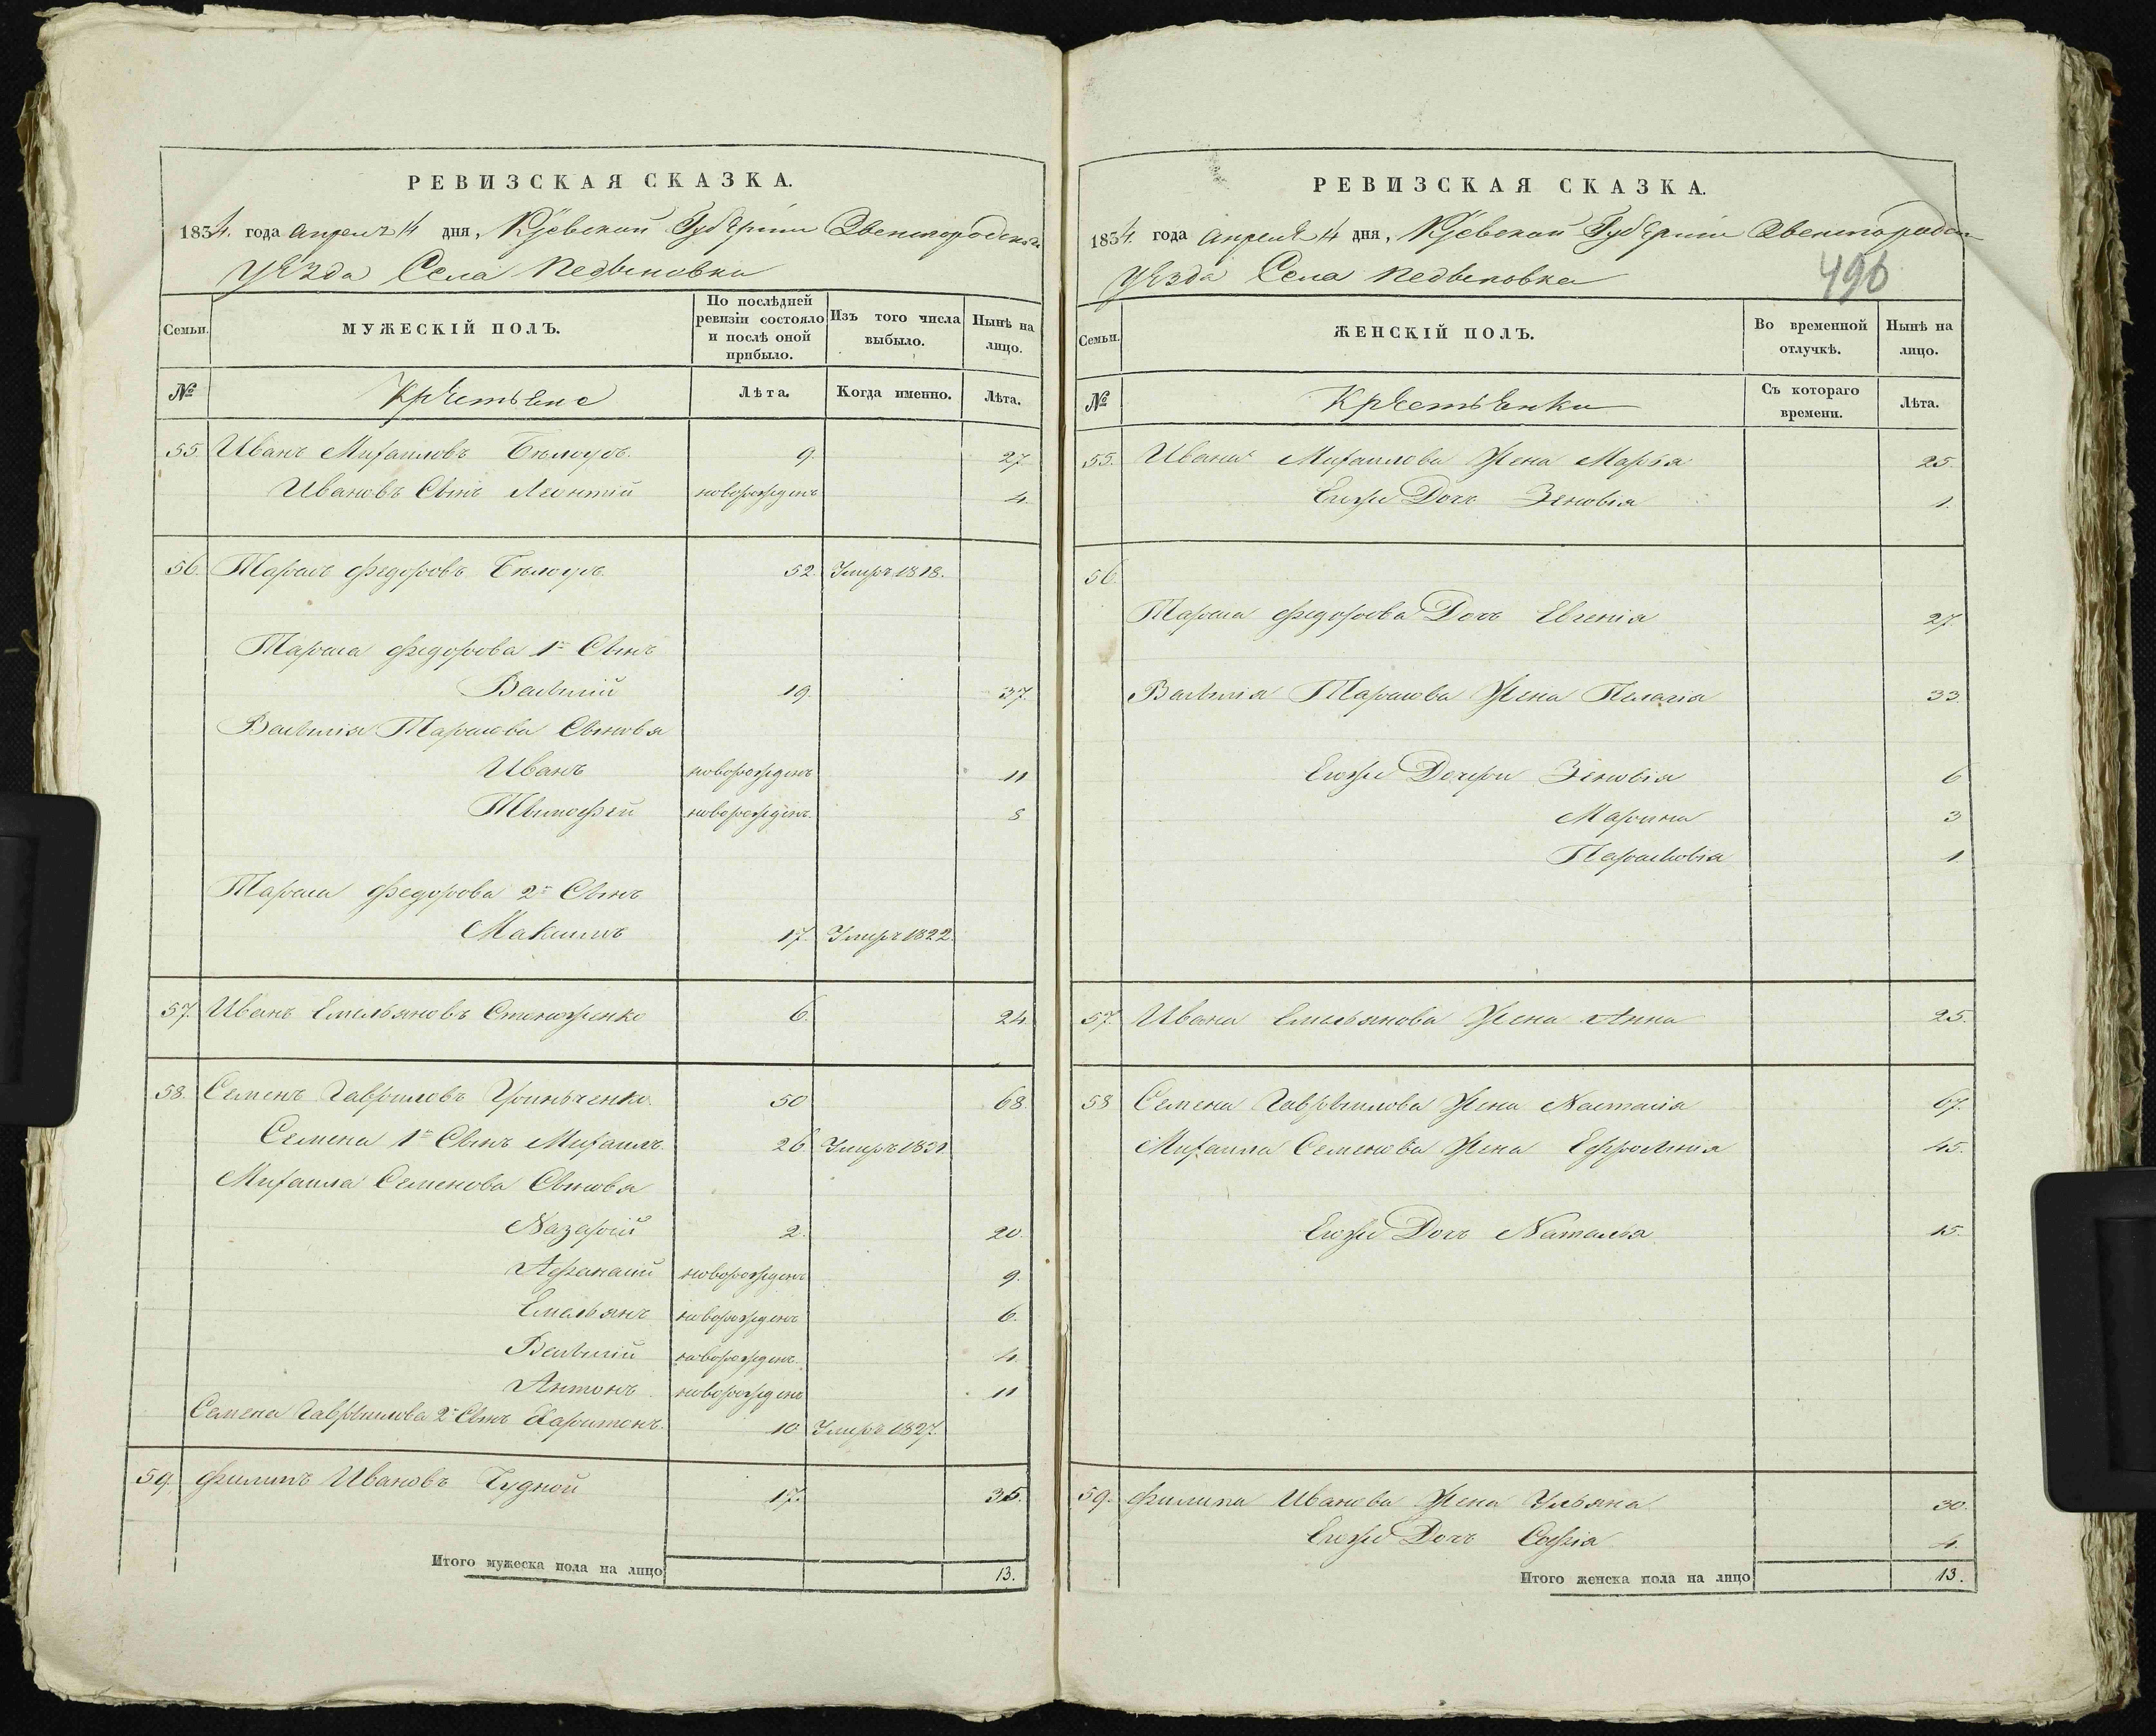 РЕВИЗСКАЯ СКАЗКА.
1834. года апреля 4 дня, Кіевской Губерніи Звенигородскаго
уѣзда Села Педыновка
Семьи. МУЖЕСКІЙ ПОЛЪ. По послѣдней ревизіи состояло и послѣ оной прибыло. Изъ того числа выбыло. Нынѣ на лицо.
№ Крестьяне Лѣта. Когда именно. Лѣта.
55. Иванъ Михаиловъ Бѣлоусъ. 9. 27
Ивановъ Сынъ Леонтій новорожденъ 4.
56. Тарасъ Федоровъ Бѣлоусъ. 52. Умеръ 1818.
Тараса Федорова 1й Сынъ
Василій 19. 37.
Василія Тарасова Сыновья
Иванъ новорожденъ 11
Тимофей новорожденъ 8
Тараса Федорова 2й Сынъ
Максимъ 17. Умеръ 1822.
57. Иванъ Емельяновъ 6. 24.
58. Семенъ Гавриловъ Гриньченко. 50 68.
Семена 1й Сынъ Михаилъ. 26. Умеръ 1831
Михаила Семенова Сыновья
Назарій 2. 20.
Афанасій новорожденъ 9.
Емельянъ новорожденъ 6.
Василій новорожденъ. 4.
Антонъ новорожденъ 11
Семена Гаврылова 2й Сынъ Харитонъ. 10 Умеръ 1827.
59. Филипъ Ивановъ Чудной 17. 35.
Итого мужеска пола на лицо 13.
РЕВИЗСКАЯ СКАЗКА.
1834. года апреля 4 дня, Кіевской Губерніи Звенигородск
уѣзда Села Педыновка
490
Семьи. ЖЕНСКІЙ ПОЛЪ. Во временной отлучкѣ. Нынѣ на лицо.
№ Крестьянки Съ котораго времени. Лѣта.
55. Ивана Михаилова Жена Марья 25.
Ихже Дочь Зеновія 1.
56.
Тараса Федорова Дочь Евгенія 27
Василія Тарасова Жена Пелагія 33.
Ихже Дочери Зеновія 6
Марина 3
Парасковія 1.
57. Ивана Емельянова Жена Анна 25.
58 Семена Гаврылова Жена Настасія 67.
Михаила Семенова Жена Ефросинія 45.
Ихже Дочь Наталья 15.
59. Филипа Иванова Жена Ульяна. 30.
Ихже Дочь Софія 4.
Итого женска пола на лицо 13.